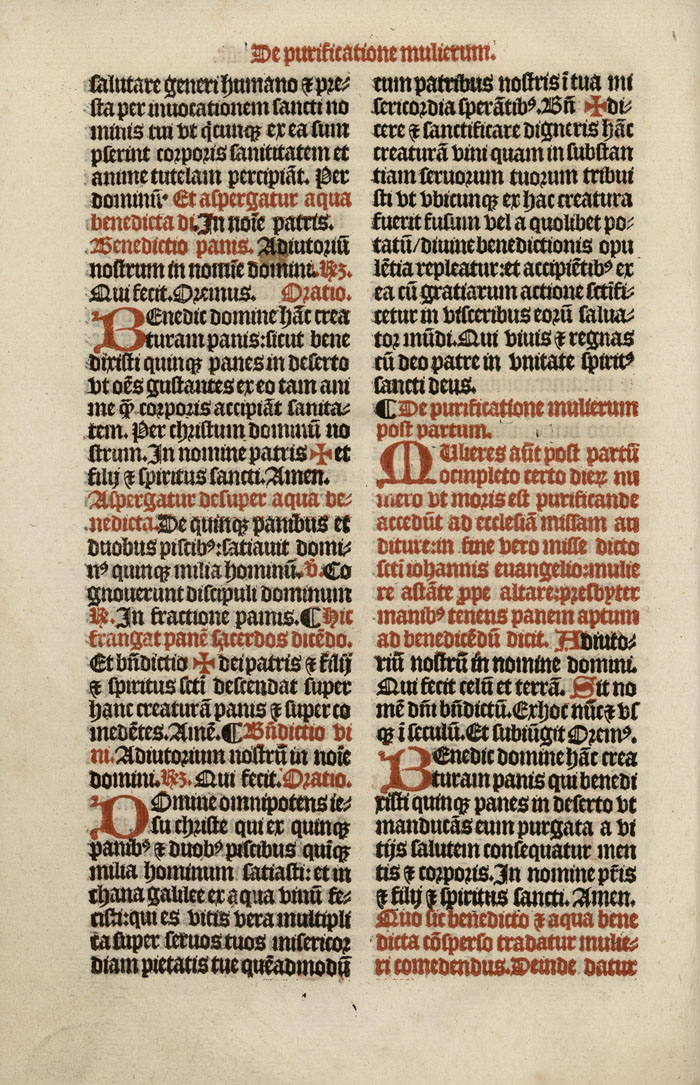 De purificatione mulierum.
salutare generi humano ⁊ pre-
sta per inuocationem sancti no
minis tui vt q̇cunqꝫ ex ea sum
pserint corporis sanititatem et
anime tutelam percipiāt. Per
dominū. Et aspergatur aqua
benedicta di. In noīe patris.
Benedictio panis. Adiutoriū
nostrum in nomīe domini. ℟ꝫ.
Qui fecit. Oremus. Oratio.
BEnedic domine hāc crea
turam panis: sicut bene
dixisti quinqꝫ panes in deserto
vt oēs gustantes ex eo tam ani
me q̄ꝫ corporis accipiāt sanita-
tem. Per christum dominū no
strum. In nomine patris ✠ et
filij ⁊ spiritus sancti. Amen.
Aspergatur desuper aqua be-
nedicta. De quinqꝫ panibus et
duobus piscibꝰ: satiauit domi-
nꝰ quinqꝫ milia hominū. ℣. Co
gnouerunt discipuli dominum
℟. In fractione panis. ¶ Hic
frangat panē sacerdos dicēdo.
Et bn̄dictio ✠ dei patris ⁊ filij
⁊ spiritus scti descendat super
hanc creaturā panis ⁊ super co
medētes. Amē. ¶ Bn̄dictio vi
ni. Adiutorium nostrū in noīe
domini. ℟ꝫ. Qui fecit. Oratio.
DOmine omnipotens ie-
su christe qui ex quinqꝫ
panibꝰ ⁊ duobꝰ piscibus quīqꝫ
milia hominum satiasti: et in
chana galilee ex aqua vinū fe-
cisti: qui es vitis vera multipli
ca super seruos tuos misericor
diam pietatis tue quēadmodū
cum patribus nostris ī tua mi
sericordia sperātibꝰ. Bn̄ ✠ di-
cere ⁊ sanctificare digneris hāc
creaturā vini quam in substan
tiam seruorum tuorum tribui
sti vt vbicunqꝫ ex hac creatura
fuerit fusum vel a quolibet po-
tatū/ diuine benedictionis opu
lētia repleatur: et accipiētibꝰ ex
ea cū gratiarum actione sctīfi-
cetur in visceribus eorū salua-
tor mūdi. Qui viuis ⁊ regnas
cū deo patre in vnitate spiritꝰ
sancti deus.
¶ De purificatione mulierum
post partum.
MUlieres aūt post partū
ocmpleto certo dieꝝ nu
mero vt moris est purificande
accedūt ad ecclesiā missam au
diture: in fine vero misse dicto
scti iohannis euangelio: mulie
re astāte ꝓpe altare: presbyter
manibꝰ tenens panem aptum
ad benedicēdū dicit. Adiuto-
riū nostrū in nomine domini.
Qui fecit celū et terrā. Sit no
mē dn̄i bn̄dictū. Exhoc nūc ⁊ vs
qꝫ ī seculū. Et subiūgit Oremꝰ.
BEnedic domine hāc crea
turam panis qui benedi
xisti quinqꝫ panes in deserto vt
manducās eum purgata a vi
tijs salutem consequatur men
tis ⁊ corporis. In nomine pr̄is
⁊ filij ⁊ spiritus sancti. Amen.
Quo sic benedicto ⁊ aqua bene
dicta cōsperso tradatur mulie-
ri comedendus. Deinde datur